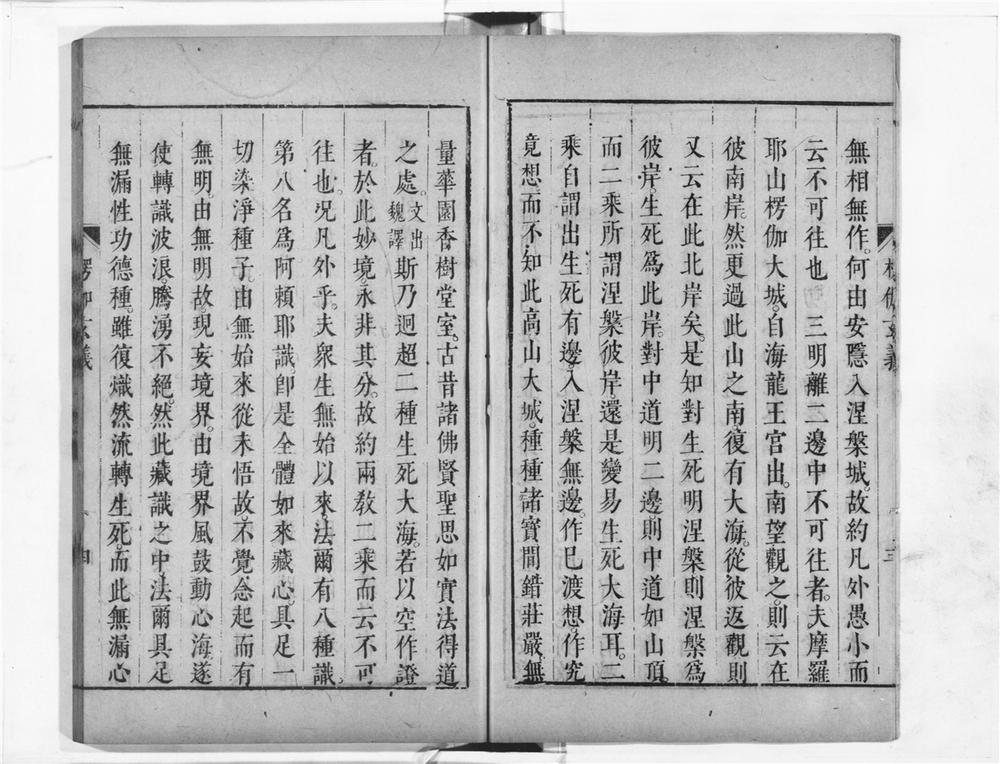 無相無作。何由安隱入涅槃城。故約凡外愚小而
云不可往也　三明離二邊中不可往者。夫摩羅
耶山楞伽大城。自海龍王宮出。南望觀之。則云在
彼南岸。然更過此山之南。復有大海。從彼返觀則
又云在此北岸矣。是知對生死明涅槃則涅槃爲
彼岸。生死爲此岸。對中道明二邊。則中道如山頂。
而二乘所謂涅槃彼岸。還是變易生死大海耳。二
乘自謂出生死有邊。入涅槃無邊。作已渡想。作究
竟想。而不知此高山大城。種種諸寶間錯莊嚴。無
量華園香樹堂室。古昔諸佛賢聖思如實法得道
之處。文出魏譯斯乃迥超二種生死大海。若以空作證
者。於此妙境。永非其分。故約兩教二乘而云不可
往也。況凡外乎。夫衆生無始以來。法爾有八種識。
第八名爲阿賴耶識。卽是全體如來藏心。具足一
切染淨種子。由無始來從未悟故。不覺念起而有
無明。由無明故。現妄境界。由境界風鼓動心海。遂
使轉識波浪。騰湧不絕。然此藏識之中。法爾具足
無漏性功德種。雖復熾然流轉生死。而此無漏心
楞伽玄義
四